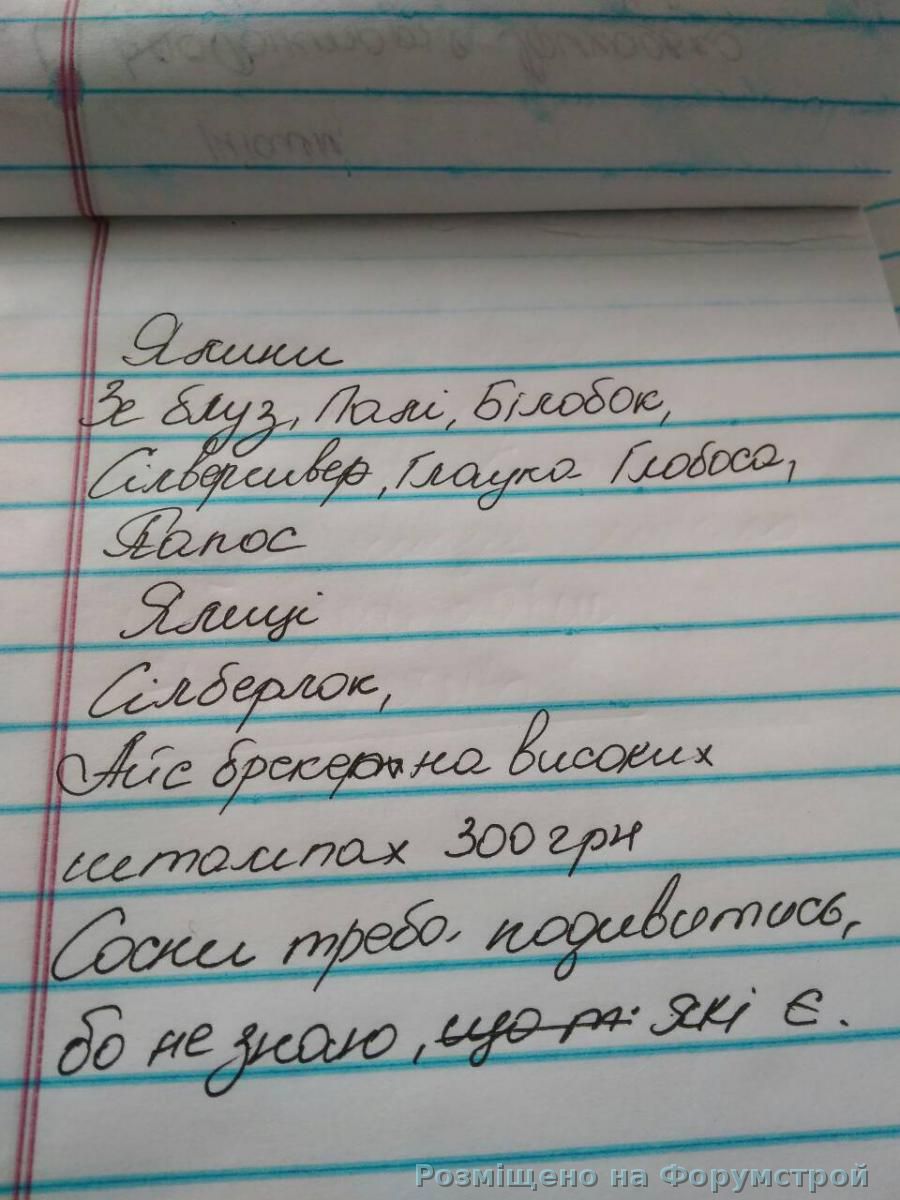 Ялини
Зе блуз, Палі, Білобок,
Сілверсивер, Глаука Глобоса,
Тапос
Ялиці
Сілберлок,
Айс брекер на високих
штампах 300 грн
Соски треба подивитись,
бо не знаю, що які є.
Розміщено на Форумстрой